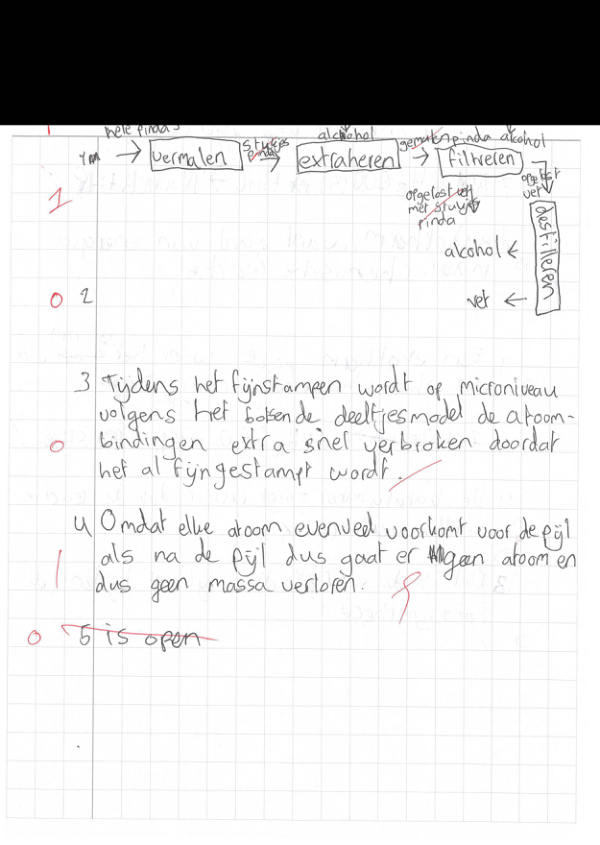 hele pinda's
alcohol
stukjes
pinda
gemalen pinda alcohol
vermalen
extraheren
filtreren
opgelost
vet
opgelost vet
met stukjes
pinda
destilleren
1
alcohol
vet
0 2
3 Tijdens het fijnstampen wordt op microniveau
volgens het botsende deeltjesmodel de atoom-
0 bindingen extra snel verbroken doordat
het al fijngestampt wordt.
4 Omdat elke atoom evenveel voorkomt voor de pijl
als na de pijl dus gaat er geen atoom en
1 dus geen massa verloren.
0 5 is open